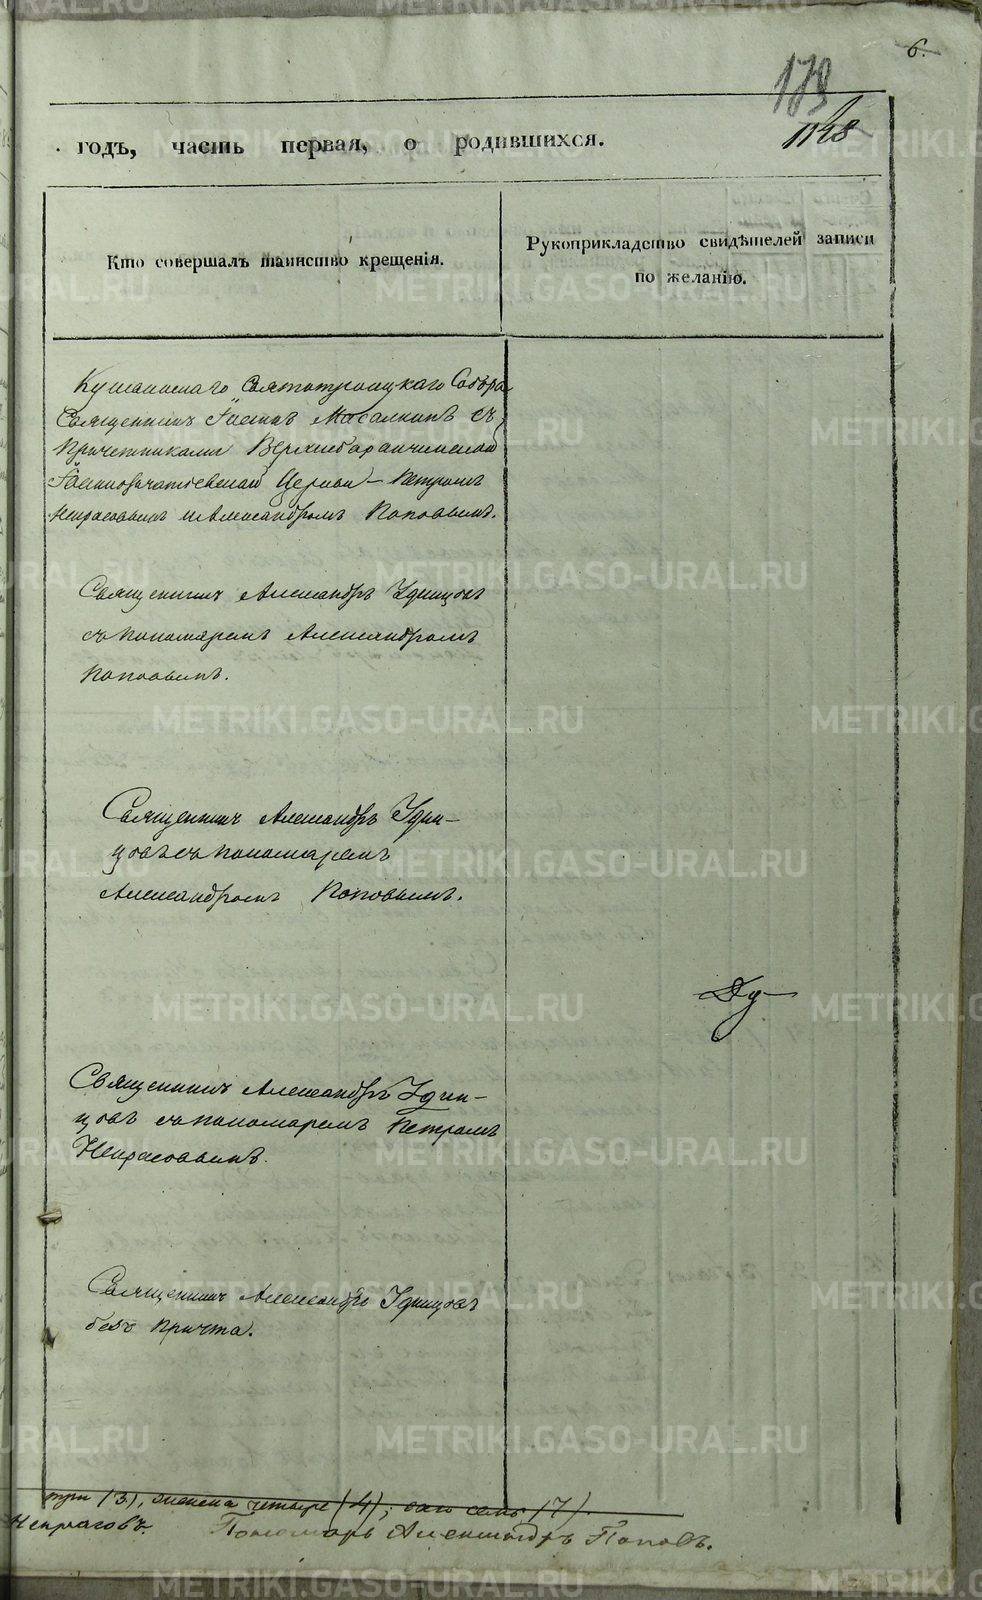 6.
173
1148
годъ, часть первая, о родившихся.
Кто совершалъ таинство крещенія.
Рукоприкладство свидѣтелей записи
по желанію.
Кушвинскаго Святотроицкаго Собора
Священникъ Іоаннъ съ
Причетниками Верхнебаранчинской
Іоанновачатіевской Церкви – Петромъ
Некрасовымъ и Александромъ Поповымъ.
Священникъ Александръ Удинцовъ
съ пономаремъ Александромъ
Поповымъ.
Священникъ Александръ Удин–
цовъ съ пономаремъ
Александромъ Поповымъ.
Священникъ Александръ Удин–
цовъ съ пономаремъ Петромъ
Некрасовымъ.
Священникъ Александръ Удинцовъ
безъ причта.
три (3), женска четыре (4); семь (7).
Некрасовъ. Пономарь Александръ Поповъ.
METRIKI.GASO-URAL.RU